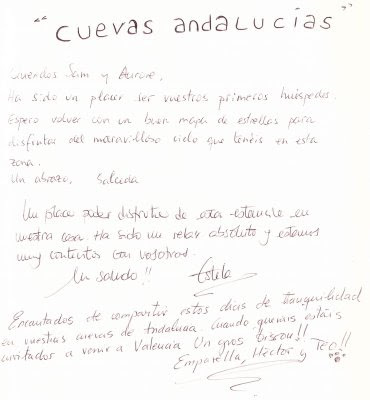 "CUEVAS ANDALUCÍAS"
Queridos Sam y Aurore,
Ha sido un placer ser vuestros primeros huéspedes.
Espero volver con un buen mapa de estrellas para
disfrutar del maravilloso cielo que tenéis en esta
zona.
Un abrazo,
Un placer poder disfrutar de esta estancia en
vuestra casa. Ha sido un relax absoluto y estamos
muy contentos con vosotros.
Un saludo!! Estela
Encantados de compartir estos días de tranquilidad
en vuestras cuevas de Andalucía. Cuando queráis estáis
invitados a venir a Valencia Un gros bisou!!
Héctor y TEO!!